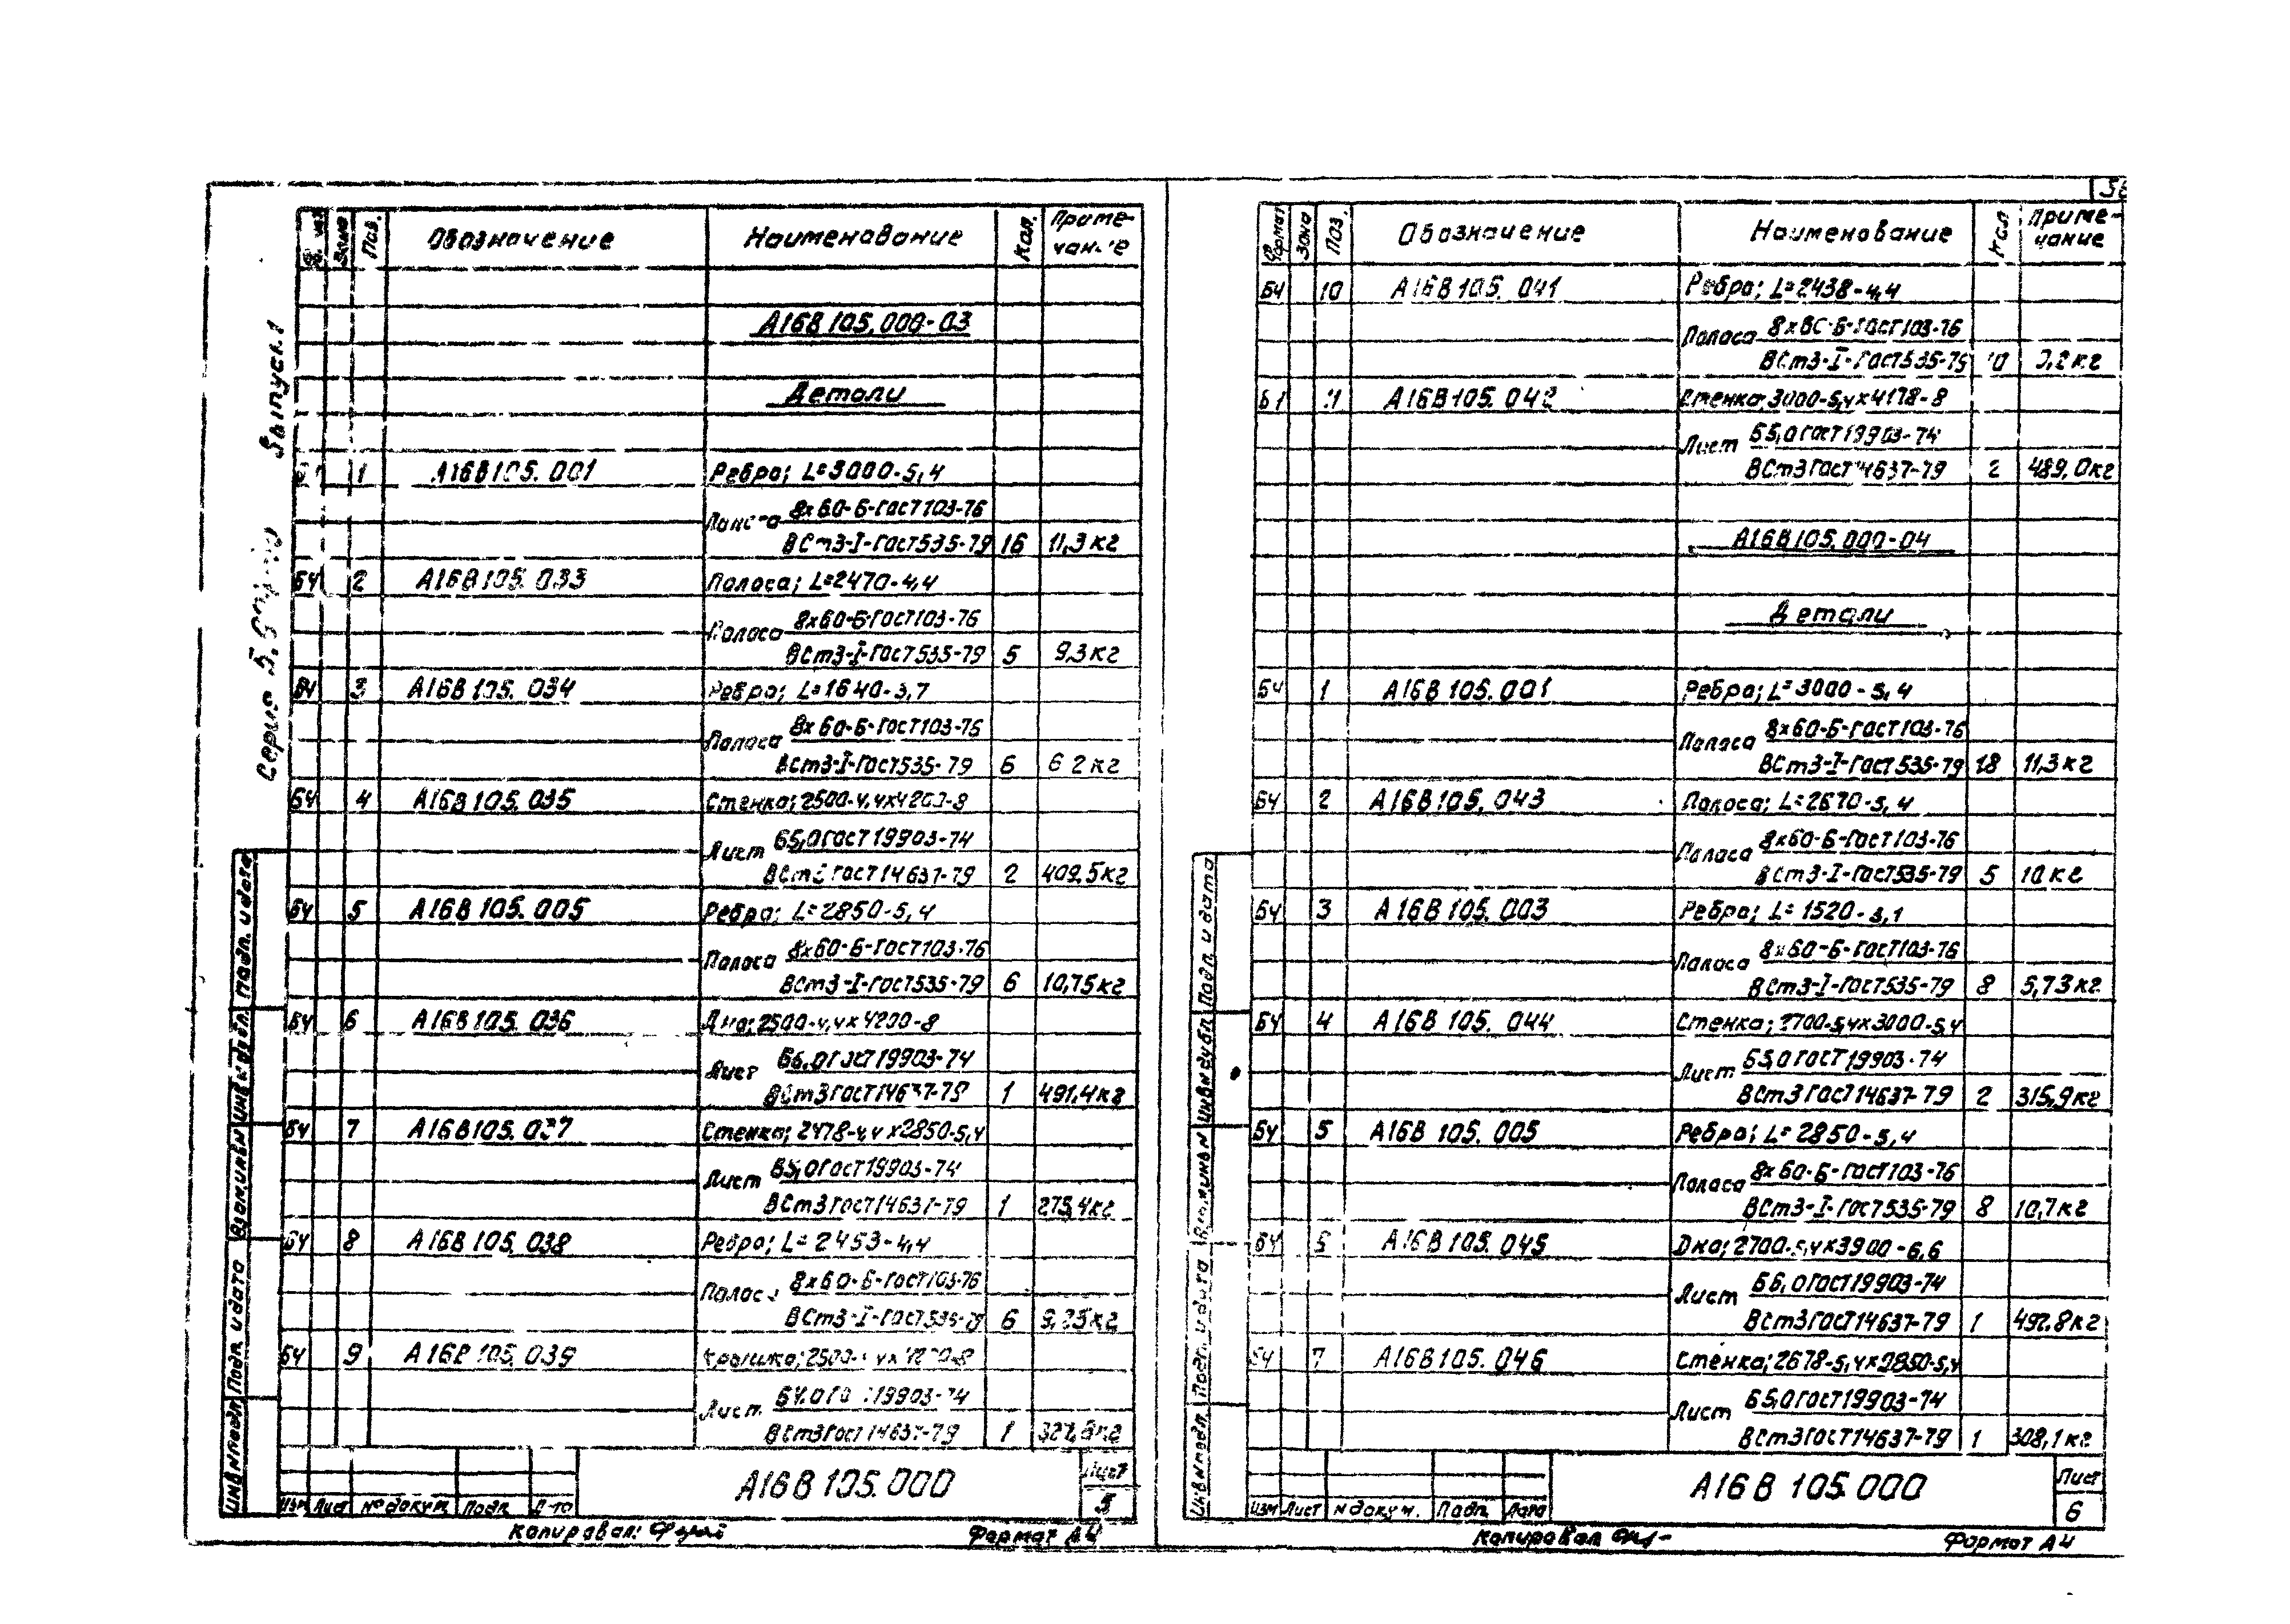 Серия 5.
Выпуск 1
Зона Поз. Обозначение Наименование Кол. Приме-
чание
А16В105.000-03
Детали
1 А16В105.001 Ребро; L=3000-5,4
Полоса 8х60-Б-ГОСТ103-76
ВСт3-I-ГОСТ535-79 16 11,3кг
БЧ 2 А16В105.033 Полоса; L=2470-4,4
Полоса 8х60-Б-ГОСТ103-76
ВСт3-I-ГОСТ535-79 5 9,3кг
БЧ 3 А16В105.034 Ребро; L=1640-3,7
Полоса 8х60-Б-ГОСТ103-76
ВСт3-I-ГОСТ535-79 6 6 2кг
БЧ 4 А16В105.035 Стенка; 2500-4,4х4200-8
Лист Б5,0ГОСТ19903-74
ВСт3ГОСТ14637-79 2 409,5кг
БЧ 5 А16В105.005 Ребро; L=2850-5,4
Полоса 8х60-Б-ГОСТ103-76
ВСт3-I-ГОСТ535-79 6 10,75кг
БЧ 6 А16В105.036 Дно; 2500-4,4х4200-8
Лист Б6,0ГОСТ19903-74
ВСт3ГОСТ14637-79 1 491,4кг
БЧ 7 А16В105.037 Стенка; 2478-4,4х2850-5,4
Лист Б5,0ГОСТ19903-74
ВСт3ГОСТ14637-79 1 275,4кг
БЧ 8 А16В105.038 Ребро; L=2453-4,4
Полоса 8х60-Б-ГОСТ103-76
ВСт3-I-ГОСТ535-79 6 9,25кг
БЧ 9 А16В105.039 Крышка; 2500-
Лист 19903-74
ВСт3ГОСТ14637-79 1
Инв№подл. Подп. и дата Взам.инв№ Инв№дубл. Подп. и дата
Изм Лист №докум. Подп. Дата А16В105.000 Лист
5
Копировал: Формат А4
Формат Зона Поз. Обозначение Наименование Кол Приме-
чание
БЧ 10 А16В105.041 Ребро; L=2438-4,4
Полоса ГОСТ103-76
ВСт3-I-ГОСТ535-79 10 9,2кг
11 А16В105.042 Стенка; 3000-5,4х4178-8
Лист Б5,0ГОСТ19903-74
ВСт3ГОСТ14637-79 2 489,0кг
А16В105.000-04
Детали
БЧ 1 А16В105.001 Ребро; L=3000-5,4
Полоса 8х60-Б-ГОСТ103-76
ВСт3-I-ГОСТ535-79 18 11,3кг
БЧ 2 А16В105.043 Полоса; L=2670-5,4
Полоса 8х60-Б-ГОСТ103-76
ВСт3-I-ГОСТ535-79 5 10кг
БЧ 3 А16В105.003 Ребро; L=1520-3,1
Полоса 8х60-Б-ГОСТ103-76
ВСт3-I-ГОСТ535-79 8 5,73кг
БЧ 4 А16В105.044 Стенка; 2700-5,4х3000-5,4
Лист Б5,0ГОСТ19903-74
ВСт3ГОСТ14637-79 2 315,9кг
БЧ 5 А16В105.005 Ребро; L=2850-5,4
Полоса 8х60-Б-ГОСТ103-76
ВСт3-I-ГОСТ535-79 8 10,7кг
БЧ 6 А16В105.045 Дно; 2700-5,4х3900-6,6
Лист Б6,0ГОСТ19903-74
ВСт3ГОСТ14637-79 1 492,8кг
БЧ 7 А16В105.046 Стенка; 2678-5,4х2850-5,4
Лист Б5,0ГОСТ19903-74
ВСт3ГОСТ14637-79 1 308,1кг
Инв№подл. Подп. и дата Взам.инв№ Инв№дубл Подп. и дата
Изм Лист №докум. Подп. Дата А16В105.000 Лист
6
Копировал Формат А4